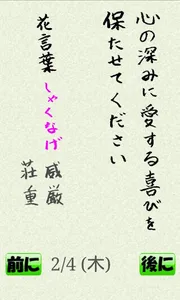 心の深みに愛する喜びを
保たせてください
花言葉
しゃくなげ
威厳
荘重
前に
2/4 (木)
後に